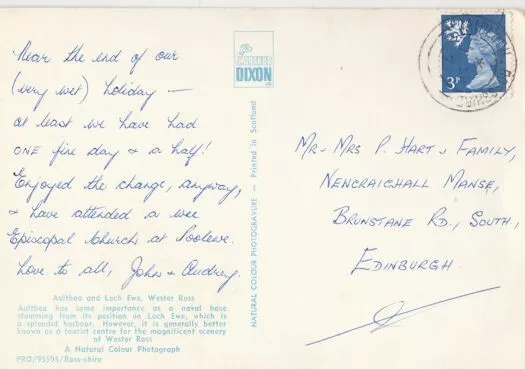 Near the end of our
(very wet) holiday —
at least we have had
ONE fine day & a half!
Enjoyed the change, anyway,
& have attended a wee
Episcopal Church at Poolewe.
Love to all, John & Audrey.
Aultbea and Loch Ewe, Wester Ross
Aultbea has some importance as a naval base
stemming from its position on Loch Ewe, which is
a splendid harbour. However, it is generally better
known as a tourist centre for the magnificent scenery
of Wester Ross
A Natural Colour Photograph
PRO/95595/Ross-shire
DIXON
NATURAL COLOUR PHOTOGRAVURE — Printed in Scotland
3P
MR & MRS P. HART & FAMILY,
NENCRAIGHALL MANSE,
BRUNSTANE RD., SOUTH,
EDINBURGH.